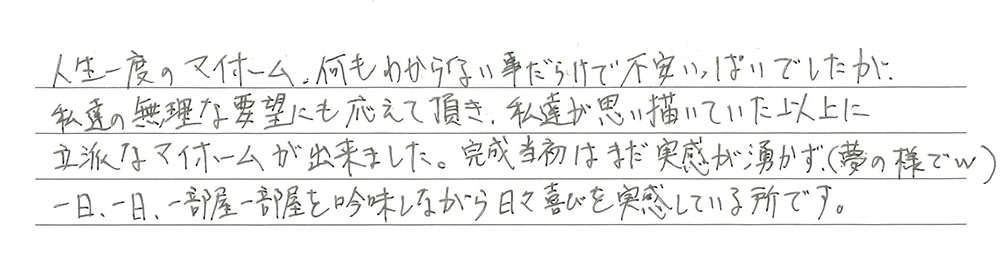 人生一度のマイホーム、何もわからない事だらけで不安いっぱいでしたが、
私達の無理な要望にも応えて頂き、私達が思い描いていた以上に
立派なマイホームが出来ました。完成当初はまだ実感が湧かず、(夢の様でw)
一日、一日、一部屋一部屋を吟味しながら日々喜びを実感している所です。